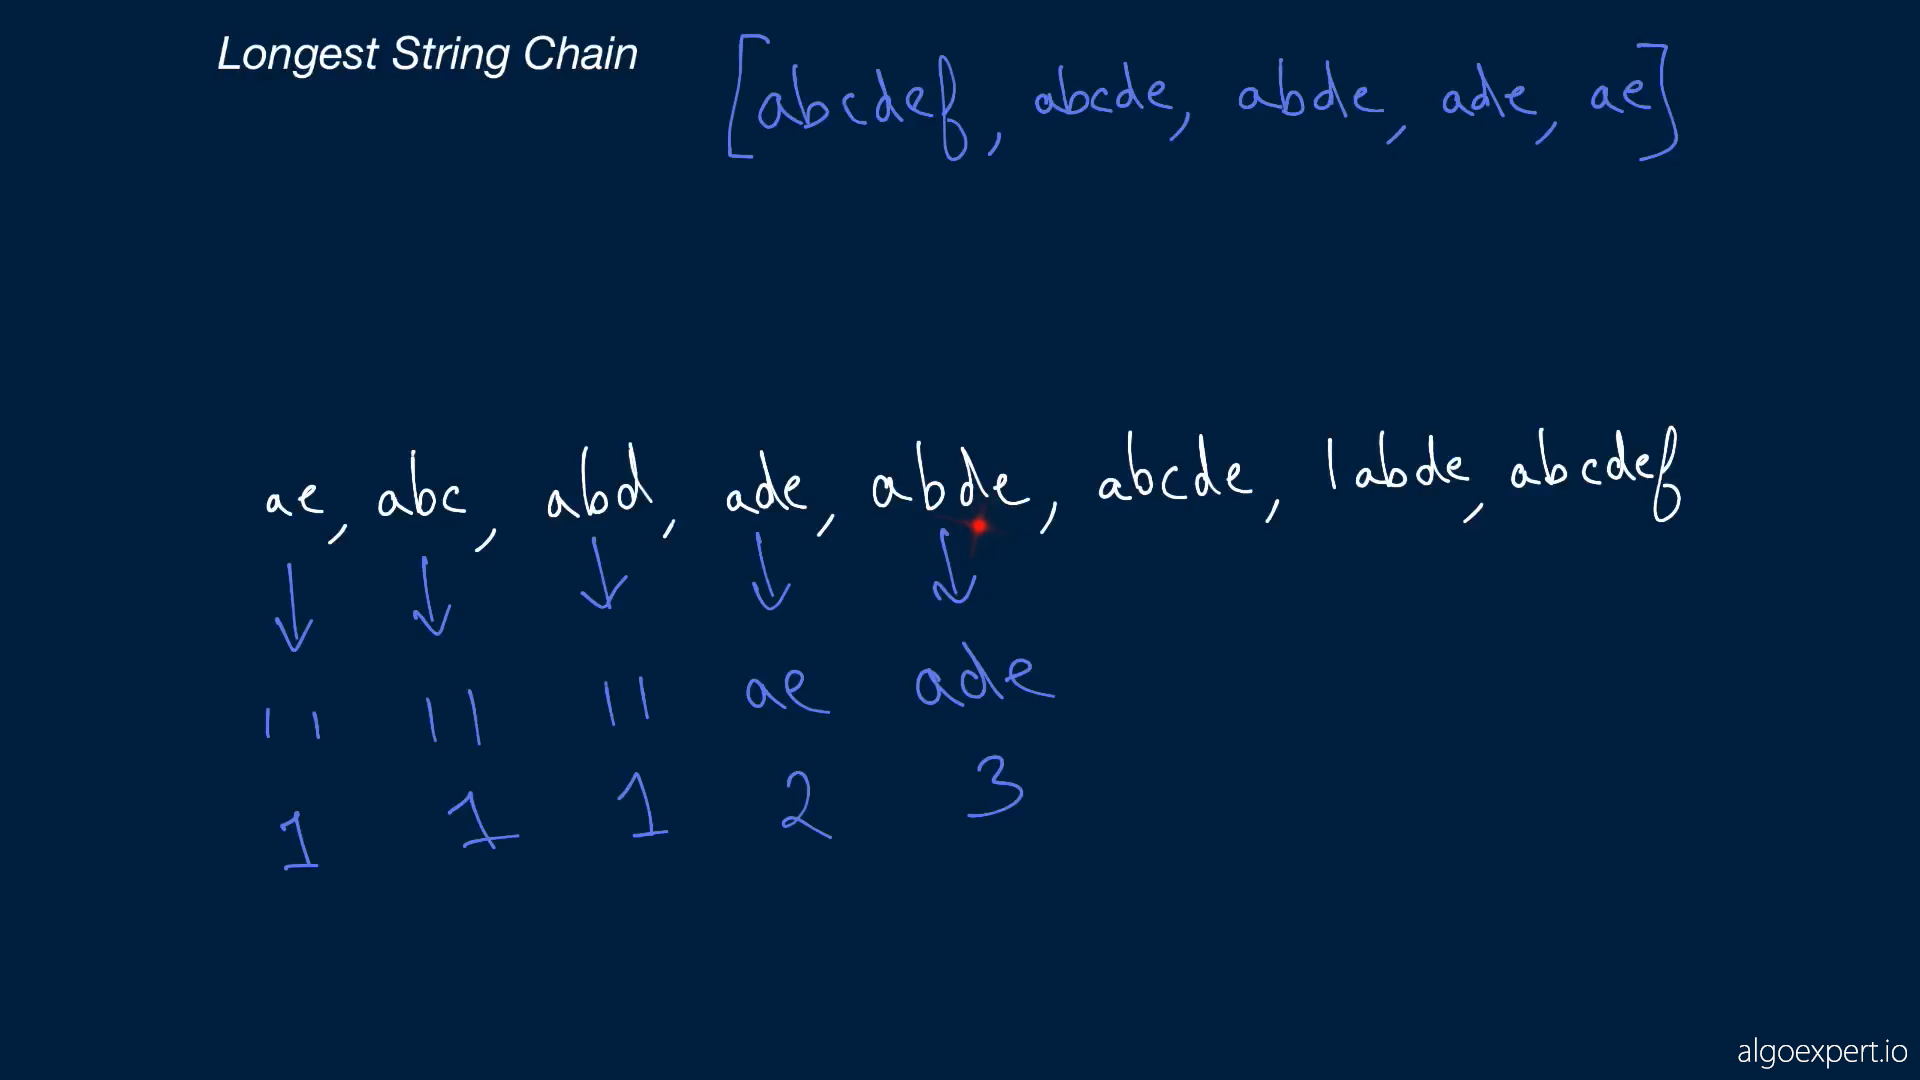 Longest String Chain
[abcdef, abcde, abde, ade, ae]
ae, abc, abd, ade, abde, abcde, 1abde, abcdef
"" "" "" ae ade
1 1 1 2 3
algoexpert.io